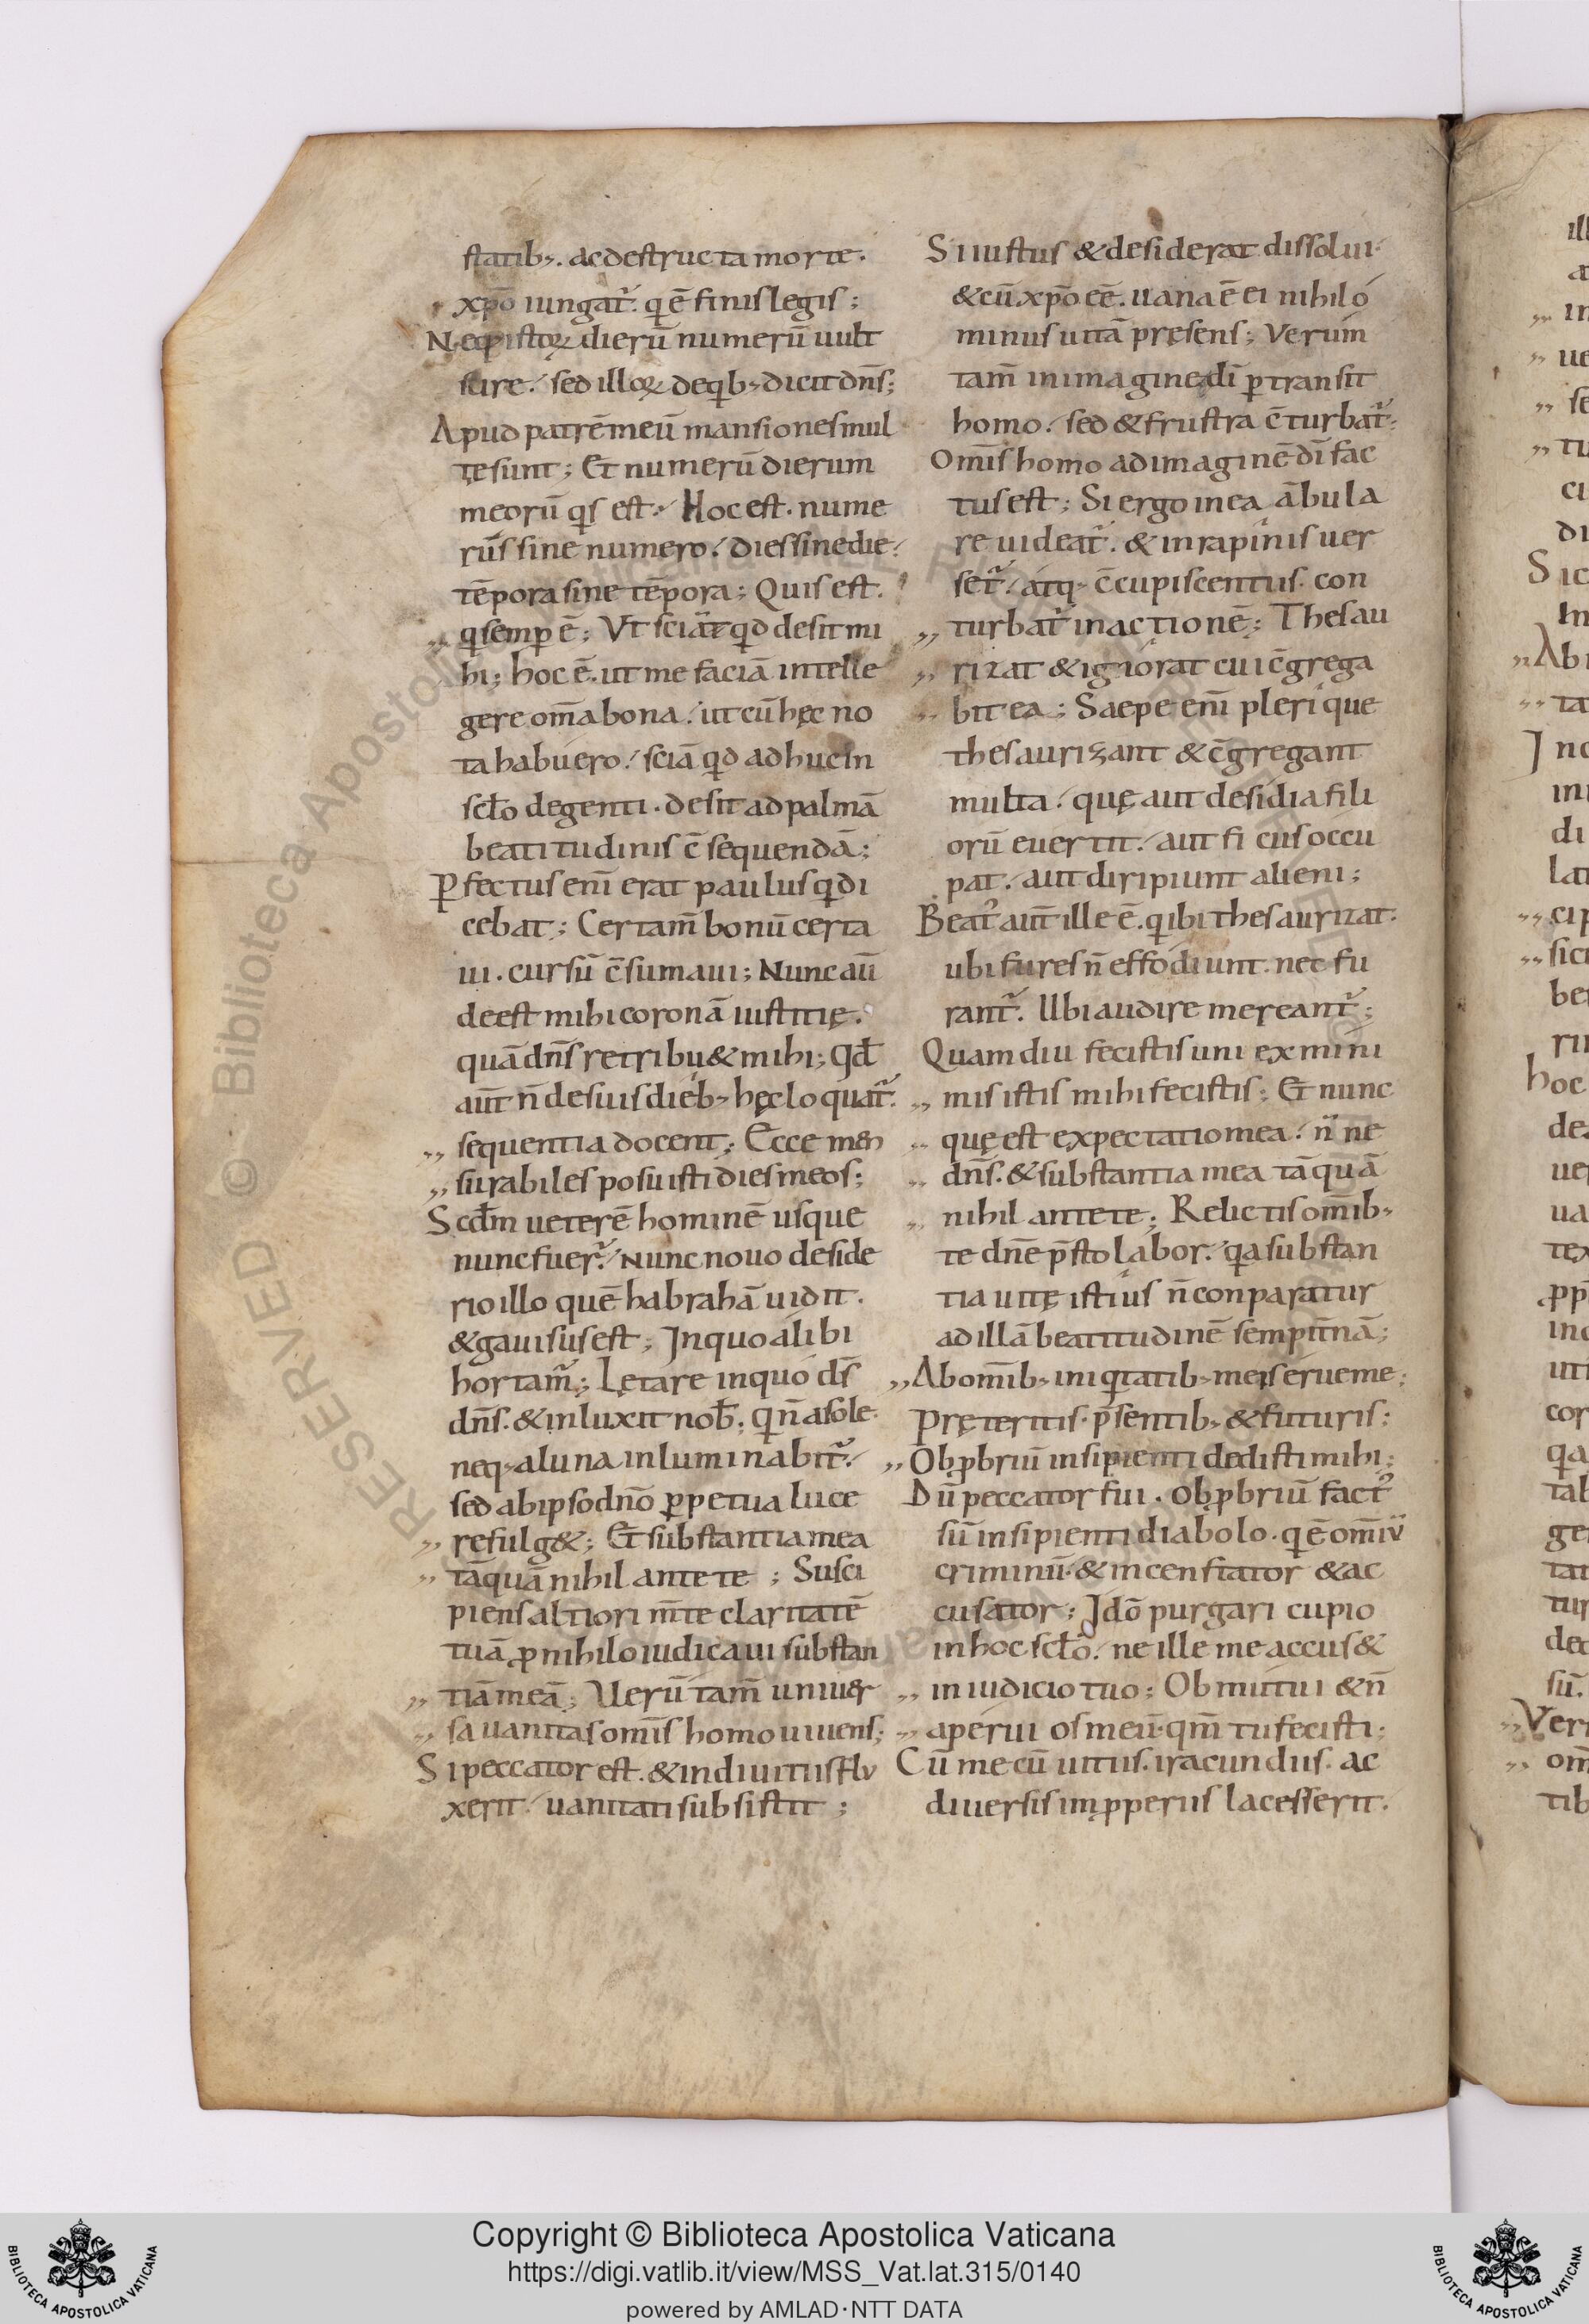 statib;. ac destructa morte.
xp̄o iungat᷑. q ē finis legis;
Neq; istoꝝ dierū numerū uult
scire. sed illoꝝ de qib; dicit dn̄s;
Apud patrē meū mansiones mul
tę sunt; Et numerū dierum
meorū qis est. Hoc est. nume
rūs sine numero. dies sine die.
tēpora sine tēpora; Quis est.
qi semp̱ ē; Vt sciā qid desit mi
hi; hoc ē. ut me faciā intelle
gere om̄a bona. ut cū hęc no
ta habuero. sciā qid adhuc in
scło degenti. desit ad palmā
beatitudinis c̄sequendā;
ꝑfectus enī erat paulus qi di
cebat; Certam̄ bonū certa
ui. cursū c̄sumaui; Nunc aū
deest mihi coronā iustitię.
quā dn̄s retribu& mihi; Qđ
aūt n̄ de suis dieb; hęc loquat᷑.
sequentia docent; Ecce men
surabiles posuisti dies meos;
Scđm ueterē hominē usque
nunc fuer᷑. Nunc nouo deside
rio illo quē habrahā uidit.
& gauisus est; In quo alibi
hortam᷑; Lętare in quo ds̄
dn̄s. & inluxit nob̄; qi n̄ a sole.
neq; a luna inluminabit᷑.
sed ab ipso dn̄o ꝑpetua luce
refulg&; Et substantia mea
tāquā nihil ante te; Susci
piens altiori m̄te claritatē
tuā ꝓ nihilo iudicaui substan
tiā meā; Uerū tam̄ uniuer
sa uanitas omīs homo uiuens;
Si peccator est. & in diuitiis flu
xerit. uanitati subsistit;
Si iustus & desiderat dissolui.
& cū xp̄o eē. uana ē ei nihilo
minus uitā pręsens; Verum
tam̄ in imagine dī ꝑtransit
homo. sed & frustra c̄turbat᷑;
Omīs homo ad imaginē dī fac
tus est; Si ergo in ea ābula
re uideat᷑. & in rapinis uer
set᷑. atq; c̄cupiscentiis. con
turbat᷑ in actionē; Thesau
rizat & ignorat cui c̄grega
bit ea; Saepe enī plerique
thesaurizant & c̄gregant
multa. quę aut desidia fili
orū euertit. aut fi cus occu
pat. aut diripiunt alieni;
Beat᷒ aūt ille ē. qi ibi thesaurizat.
ubi fures n̄ effodiunt. nec fu
rant᷑. Ubi audire mereant᷑;
Quamdiu fecistis uni ex mini
mis istis mihi fecistis; Et nunc
quę est expectatio mea. n̄ne
dn̄s. & substantia mea tāquā
nihil ante te; Relictis om̄ib;
te dn̄e p̄stolabor. qia substan
tia uitę istius n̄ conparatur
ad illā beatitudinē sempit̄nā;
Ab om̄ib; iniqitatib; meis erue me;
Pręteritis. p̄sentib; & futuris;
Obꝓbriū insipienti dedisti mihi;
Dū peccator fui. obꝓbriū fact᷒
sū insipienti diabolo. qi ē om̄iū
criminū & incentator & ac
cusator; Idō purgari cupio
in hoc scło. ne ille me accus&
in iudicio tuo; Obmutui & n̄
aperui os meū. qm̄ tu fecisti;
Cū mecū uitiis. iracundus. ac
diuersis imꝓperiis lacesserit.
Copyright © Biblioteca Apostolica Vaticana
https://digi.vatlib.it/view/MSS_Vat.lat.315/0140
powered by AMLAD·NTT DATA